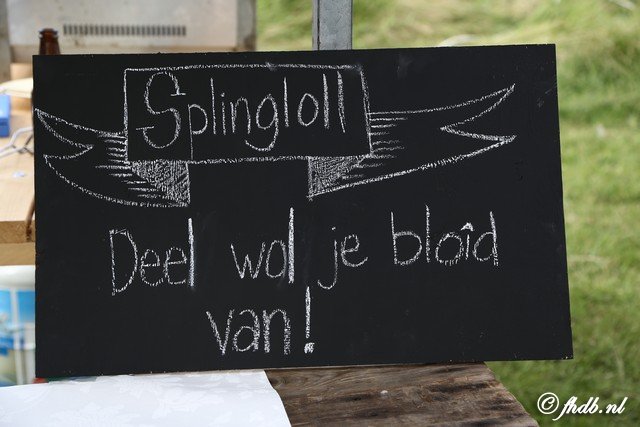 Splingloll
Deel wol je bloid
van!
© fhdb.nl